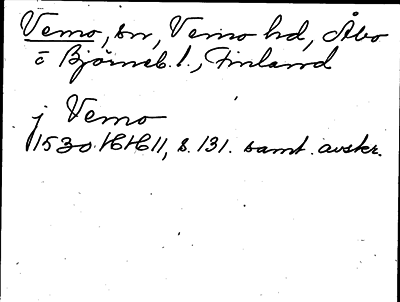 Vemo, sn, Vemo hd, Åbo
o Björneb. l., Finland
j Vemo
1530 HH 11, s. 131. samt. avskr.